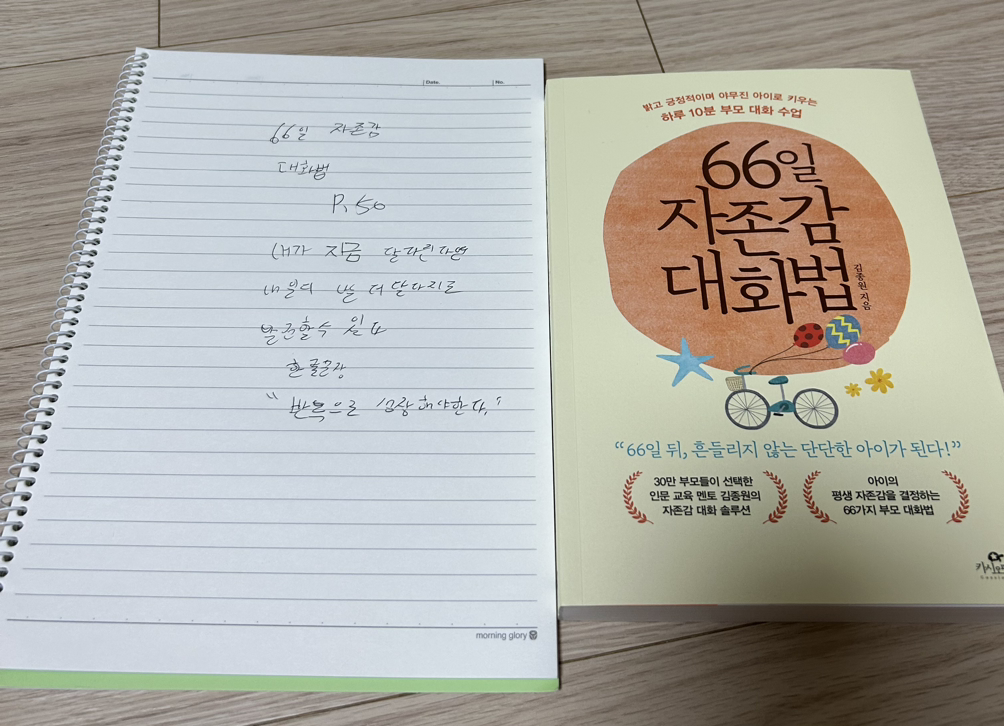 Date. No.
66일 자존감
대화법
P. 50
내가 지금 달라진다면
내일의 는 더 달라지로
발견할수 있다
한 줄문장
"반복으로 성장해야한다."
morning glory
밝고 긍정적이며 야무진 아이로 키우는
하루 10분 부모 대화 수업
66일
자존감
대화법
김종원 지음
"66일 뒤, 흔들리지 않는 단단한 아이가 된다!"
30만 부모들이 선택한
인문 교육 멘토 김종원의
자존감 대화 솔루션
아이의
평생 자존감을 결정하는
66가지 부모 대화법